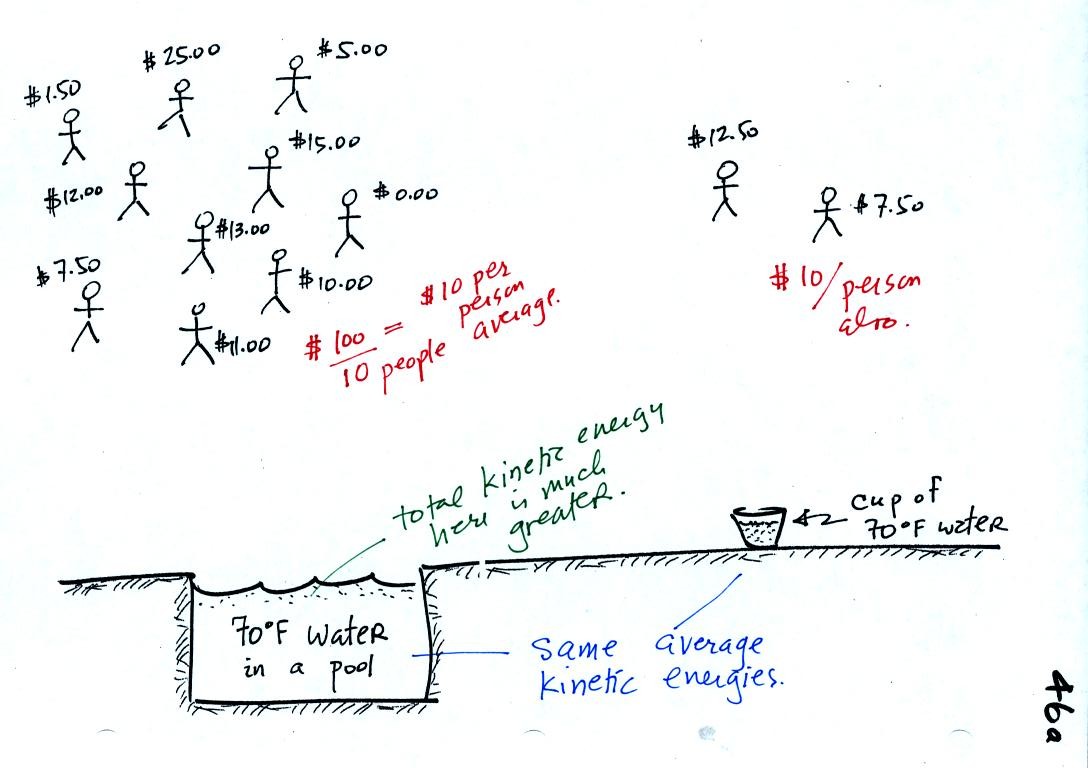 $25.00
$5.00
$1.50
$12.50
$15.00
$12.00
$0.00
$7.50
$13.00
$7.50
$10.00
$11.00
$100
10 people
=
$10 per
person
average.
$10/person
also.
total kinetic energy
here is much
greater.
cup of
70°F water
70°F water
in a pool
same average
kinetic energies.
46a